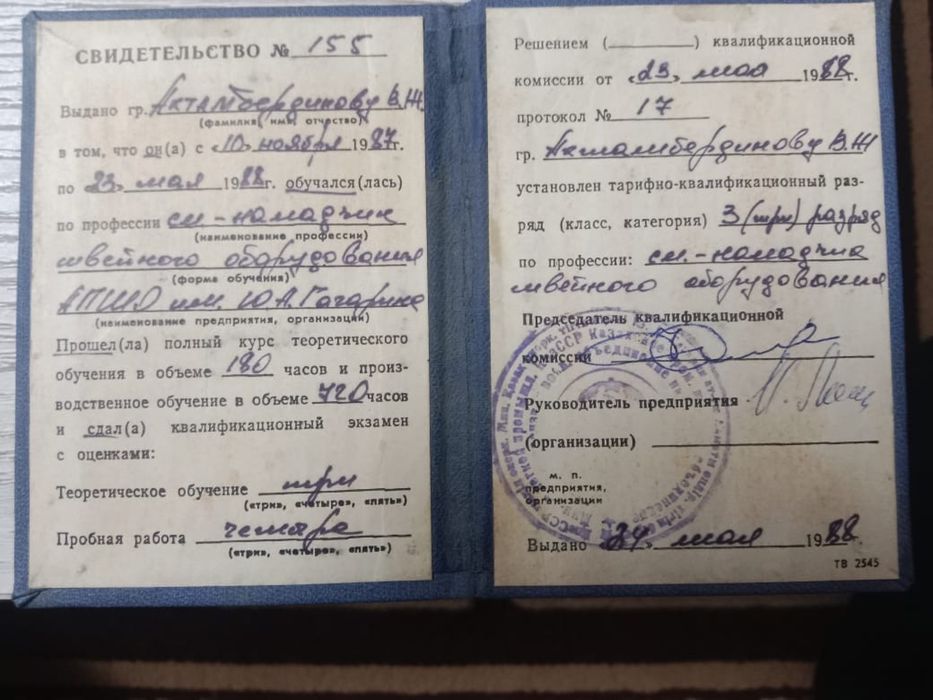 СВИДЕТЕЛЬСТВО № 155
Выдано гр. Актамбердинову В.Ж.
(фамилия, имя, отчество)
в том, что он(а) с «10» ноября 1987г.
по «23» мая 1988г. обучался(лась)
по профессии см.-наладчик
(наименование профессии)
швейного оборудования
(форма обучения)
АПШО им. Ю.А. Гагарина
(наименование предприятия, организации)
Прошел(ла) полный курс теоретического
обучения в объеме 180 часов и произ-
водственное обучение в объеме 720 часов
и сдал(а) квалификационный экзамен
с оценками:
Теоретическое обучение три
(«три», «четыре», «пять»)
Пробная работа четыре
(«три», «четыре», «пять»)
Решением (        ) квалификационной
комиссии от «23» мая 1988г.
протокол № 17
гр. Актамбердинову В.Ж
установлен тарифно-квалификационный раз-
ряд (класс, категория) 3 (три) разряд
по профессии: см.-наладчик
швейного оборудования
Председатель квалификационной
комиссии
Руководитель предприятия
(организации)
м. п.
предприятия,
организации
Выдано «24» мая 1988
ТВ 2545